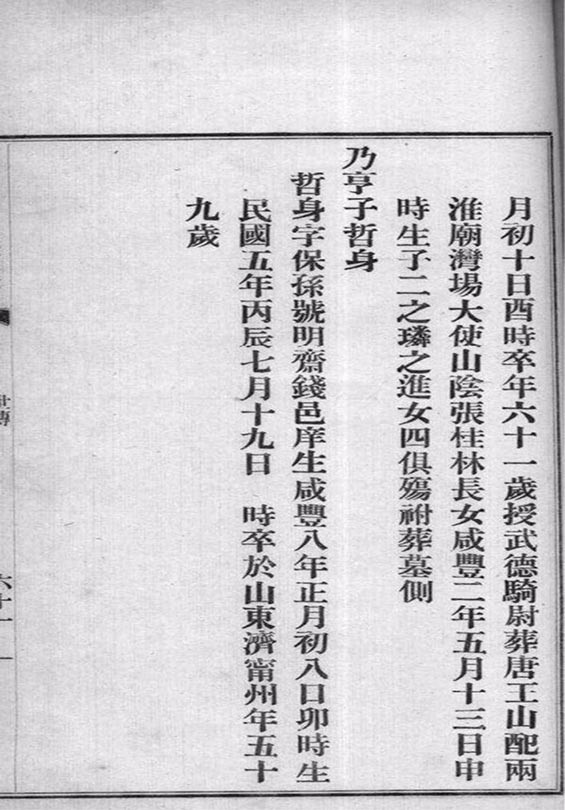 月初十日酉時卒年六十一歲授武德騎尉葬唐王山配兩
淮廟灣場大使山陰張桂林長女咸豐二年五月十三日申
時生子二之璘之進女四俱殤祔葬墓側
乃亨子哲身
哲身字保孫號明齋錢邑庠生咸豐八年正月初八日卯時生
民國五年丙辰七月十九日　時卒於山東濟甯州年五十
九歲
世傳
六十一